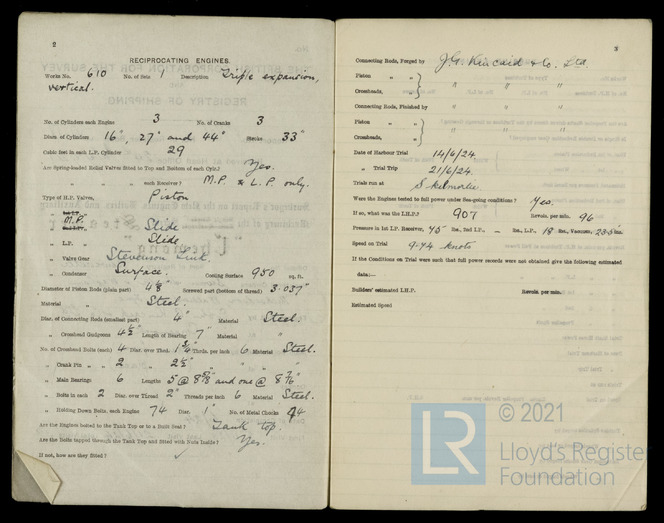 2
RECIPROCATING ENGINES.
Works No. 610 No. of Sets 1 Description Triple expansion,
vertical.
No. of Cylinders each Engine 3 No. of Cranks 3
Diam. of Cylinders 16", 27" and 44" Stroke 33"
Cubic feet in each L.P. Cylinder 29
Are Spring-loaded Relief Valves fitted to Top and Bottom of each Cyl.? Yes.
" " each Receiver? M.P. & L.P. only.
Type of H.P. Valves, Piston
M.P. Slide
" L.P. " Slide
" Valve Gear Stevenson Link
" Condenser Surface. Cooling Surface 950 sq. ft.
Diameter of Piston Rods (plain part) 4⅛" Screwed part (bottom of thread) 3.037"
Material " Steel.
Diar. of Connecting Rods (smallest part) 4" Material Steel.
" Crosshead Gudgeons 4½" Length of Bearing 7" Material "
No. of Crosshead Bolts (each) 4 Diar. over Thrd. 1¾" Thrds. per inch 6 Material Steel.
" Crank Pin " " 2 " 2½" " " "
" Main Bearings 6 Lengths 5 @ 8⅝" and one @ 8 7/16"
" Bolts in each 2 Diar. over Thread 2" Threads per inch 6 Material Steel.
" Holding Down Bolts, each Engine 74 Diar. 1" No. of Metal Chocks 74
Are the Engines bolted to the Tank Top or to a Built Seat? Tank top.
Are the Bolts tapped through the Tank Top and fitted with Nuts Inside? Yes.
If not, how are they fitted?
3
Connecting Rods, Forged by J.G. Kincaid & Co. Ltd.
Piston " "
Crossheads, " " " "
Connecting Rods, Finished by
Piston " "
Crossheads, " " " "
Date of Harbour Trial 14/6/24.
" Trial Trip 21/6/24.
Trials run at Skelmorlie
Were the Engines tested to full power under Sea-going conditions? Yes.
If so, what was the I.H.P.? 907 Revols. per min. 96
Pressure in 1st I.P. Receiver, 45 lbs., 2nd I.P., - lbs., L.P., 18 lbs., Vacuum, 23.5 ins.
Speed on Trial 9.74 knots
If the Conditions on Trial were such that full power records were not obtained give the following estimated
data:—
Builders' estimated I.H.P. Revols. per min.
Estimated Speed
LR
© 2021
Lloyd's Register
Foundation